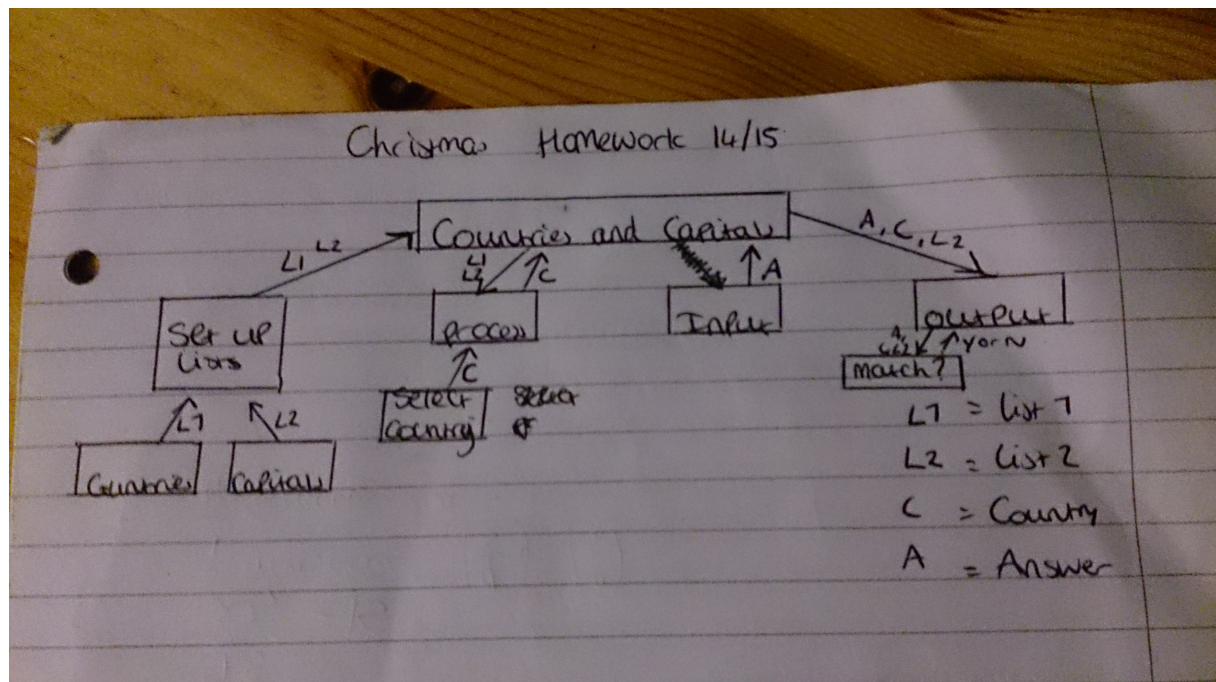 Christmas Homework 14/15
Countries and Capitals
A, C, L2
L1 L2
L1
L2
C
A
Set up
lists
Process
Input
Output
C
A,
Y or N
Match?
Select
Country
Select
L1
L2
Countries
Capitals
L1 = list 1
L2 = list 2
C = Country
A = Answer